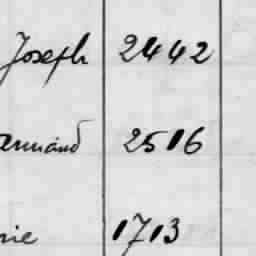 Joseph 2442
armand 2516
rie 1713